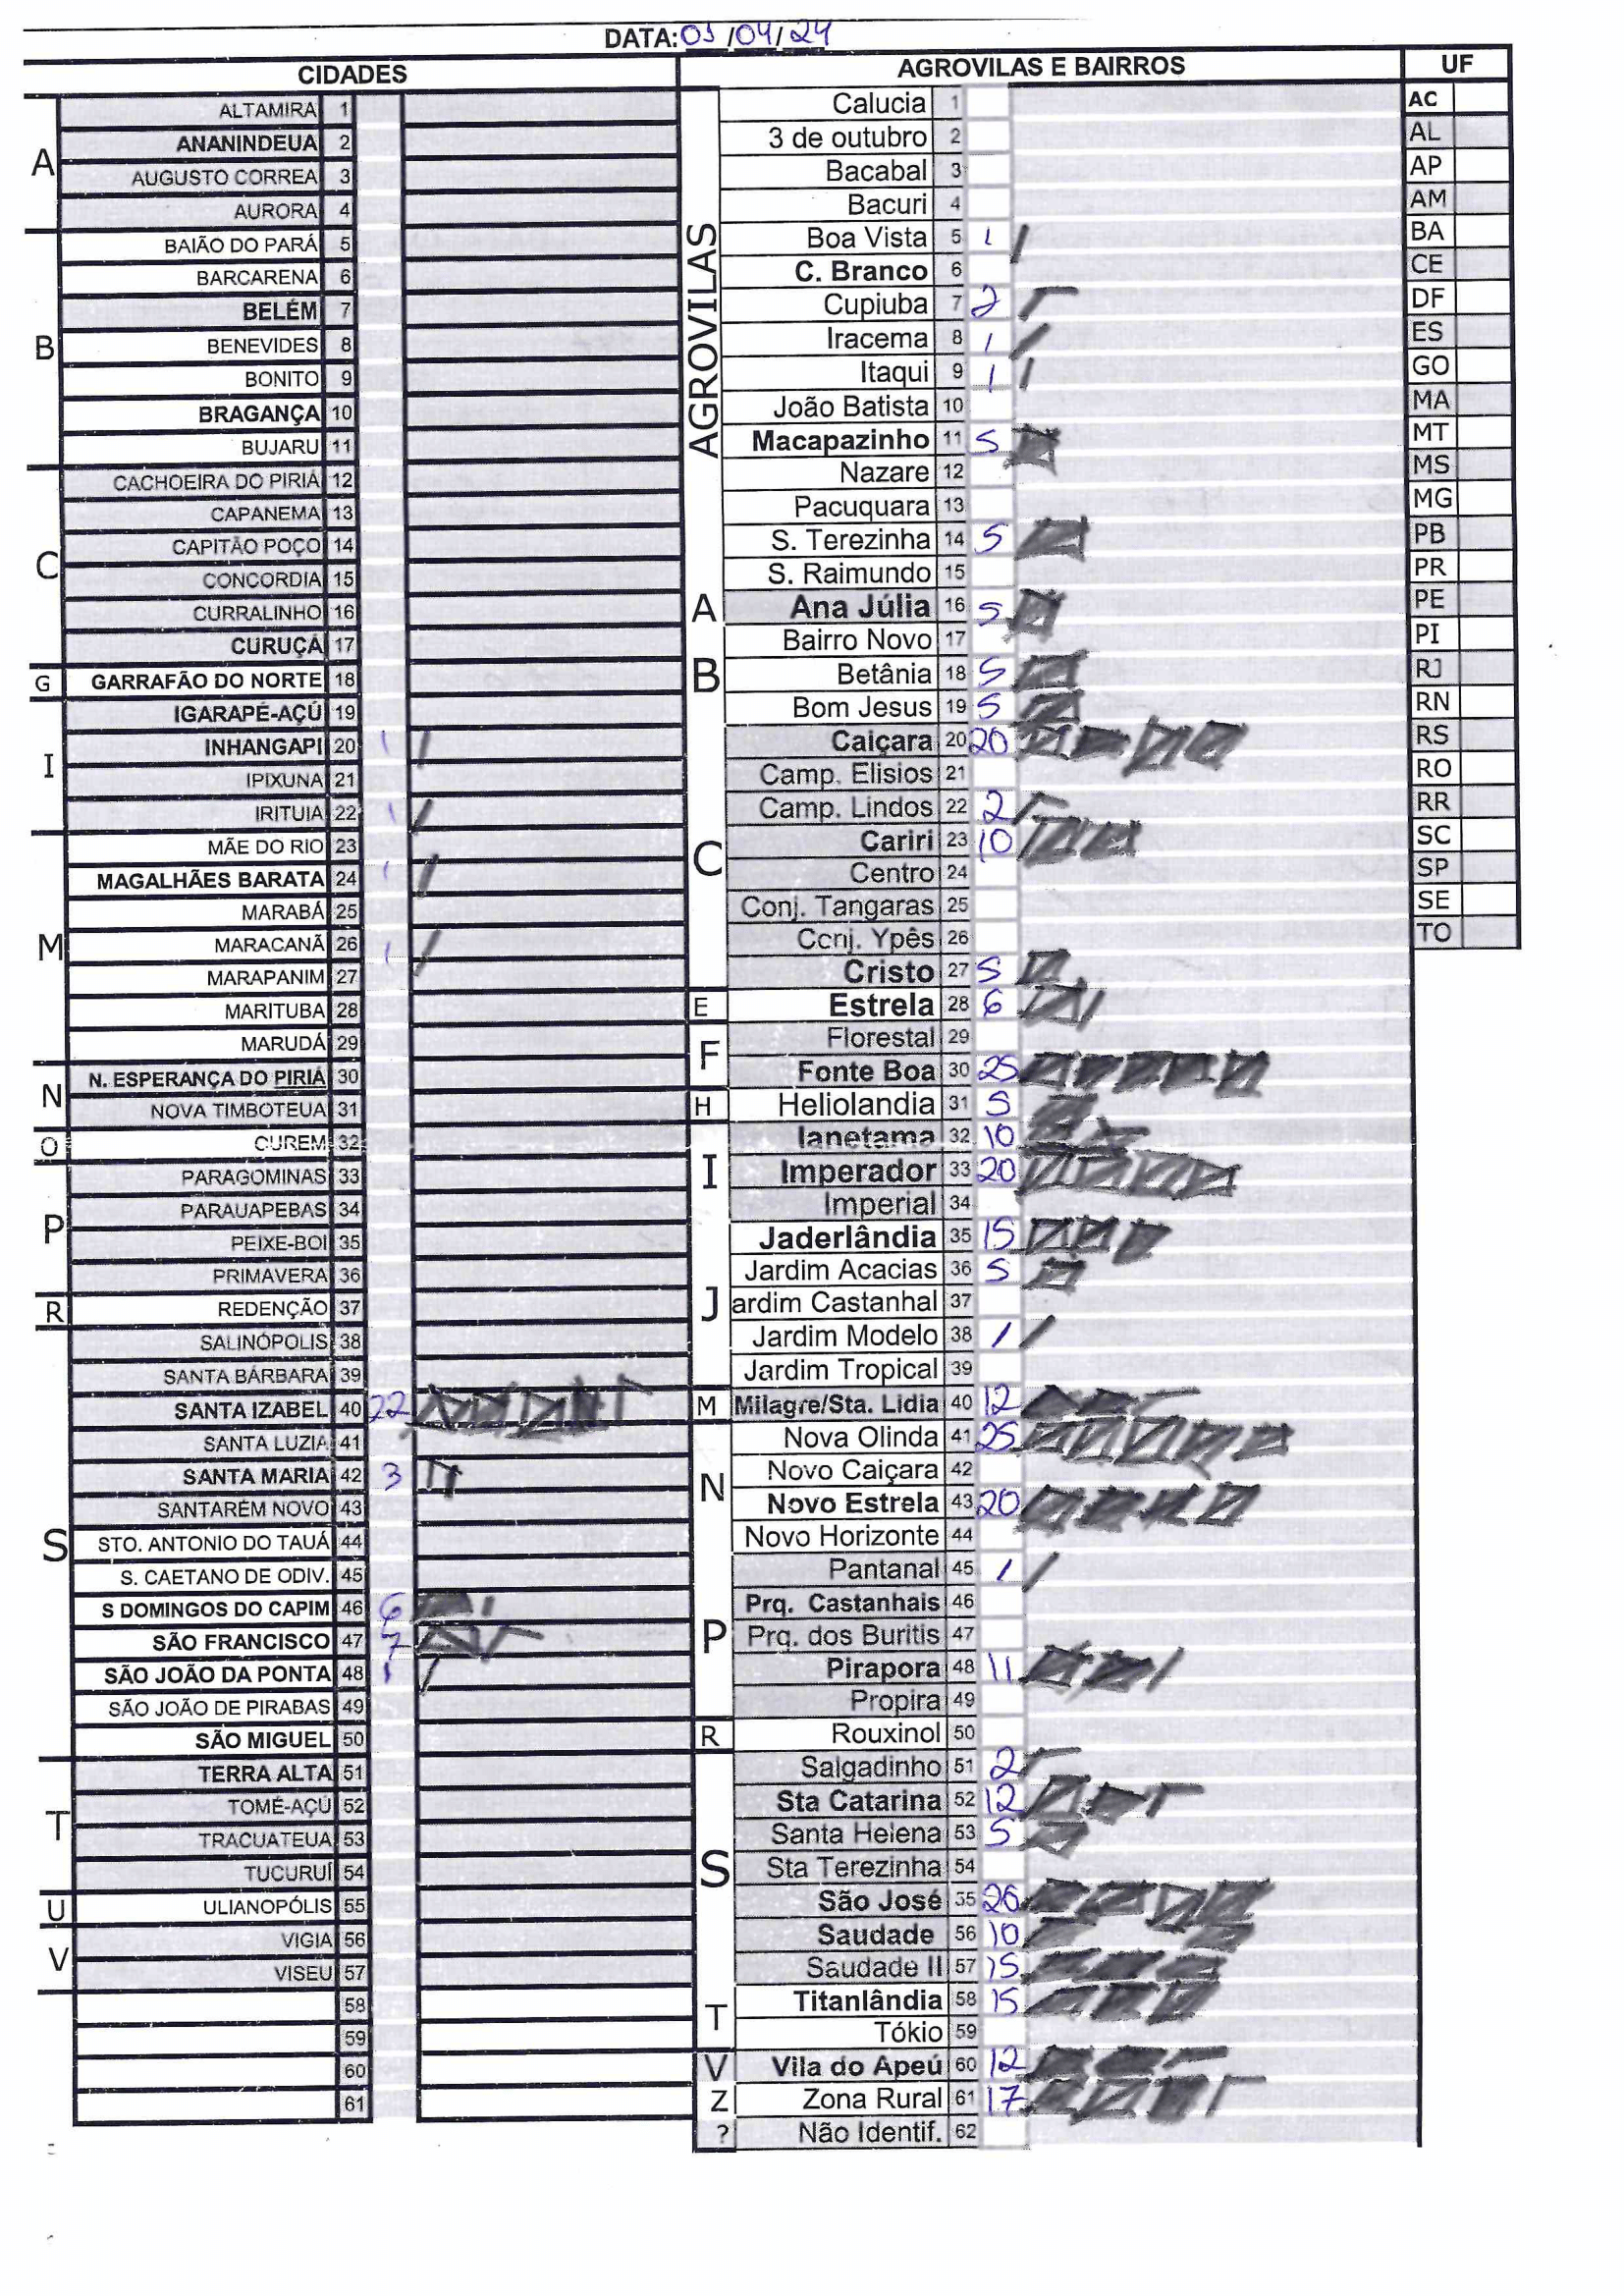 DATA: 05/04/24
CIDADES
A
ALTAMIRA 1
ANANINDEUA 2
AUGUSTO CORREA 3
AURORA 4
B
BAIÃO DO PARÁ 5
BARCARENA 6
BELÉM 7
BENEVIDES 8
BONITO 9
BRAGANÇA 10
BUJARU 11
C
CACHOEIRA DO PIRIÁ 12
CAPANEMA 13
CAPITÃO POÇO 14
CONCORDIA 15
CURRALINHO 16
CURUÇÁ 17
G
GARRAFÃO DO NORTE 18
I
IGARAPÉ-AÇÚ 19
INHANGAPI 20 1
IPIXUNA 21
IRITUIA 22 1
M
MÃE DO RIO 23
MAGALHÃES BARATA 24 1
MARABÁ 25
MARACANÃ 26 1
MARAPANIM 27
MARITUBA 28
MARUDÁ 29
N
N. ESPERANÇA DO PIRIÁ 30
NOVA TIMBOTEUA 31
O
OUREM 32
P
PARAGOMINAS 33
PARAUAPEBAS 34
PEIXE-BOI 35
PRIMAVERA 36
R
REDENÇÃO 37
S
SALINÓPOLIS 38
SANTA BÁRBARA 39
SANTA IZABEL 40 22
SANTA LUZIA 41
SANTA MARIA 42 3
SANTARÉM NOVO 43
STO. ANTONIO DO TAUÁ 44
S. CAETANO DE ODIV. 45
S DOMINGOS DO CAPIM 46 6
SÃO FRANCISCO 47 7
SÃO JOÃO DA PONTA 48 1
SÃO JOÃO DE PIRABAS 49
SÃO MIGUEL 50
T
TERRA ALTA 51
TOMÉ-AÇÚ 52
TRACUATEUA 53
TUCURUÍ 54
U
ULIANOPÓLIS 55
V
VIGIA 56
VISEU 57
58
59
60
61
AGROVILAS E BAIRROS
AGROVILAS
Calucia 1
3 de outubro 2
Bacabal 3
Bacuri 4
Boa Vista 5 1
C. Branco 6
Cupiuba 7 2
Iracema 8 1
Itaqui 9 1
João Batista 10
Macapazinho 11 5
Nazare 12
Pacuquara 13
S. Terezinha 14 5
S. Raimundo 15
A
Ana Júlia 16 5
Bairro Novo 17
B
Betânia 18 5
Bom Jesus 19 5
C
Caiçara 20 20
Camp. Elisios 21
Camp. Lindos 22 2
Cariri 23 10
Centro 24
Conj. Tangaras 25
Conj. Ypês 26
Cristo 27 5
E
Estrela 28 6
F
Florestal 29
Fonte Boa 30 25
H
Heliolandia 31 5
I
Ianetama 32 10
Imperador 33 20
Imperial 34
J
Jaderlândia 35 15
Jardim Acacias 36 5
ardim Castanhal 37
Jardim Modelo 38 1
Jardim Tropical 39
M
Milagre/Sta. Lidia 40 12
N
Nova Olinda 41 25
Novo Caiçara 42
Novo Estrela 43 20
Novo Horizonte 44
P
Pantanal 45 1
Prq. Castanhais 46
Prq. dos Buritis 47
Pirapora 48 11
Propira 49
R
Rouxinol 50
S
Salgadinho 51 2
Sta Catarina 52 12
Santa Helena 53 5
Sta Terezinha 54
São José 55 26
Saudade 56 10
Saudade II 57 15
T
Titanlândia 58 15
Tókio 59
V
Vila do Apeú 60 12
Z
Zona Rural 61 17
?
Não Identif. 62
UF
AC
AL
AP
AM
BA
CE
DF
ES
GO
MA
MT
MS
MG
PB
PR
PE
PI
RJ
RN
RS
RO
RR
SC
SP
SE
TO